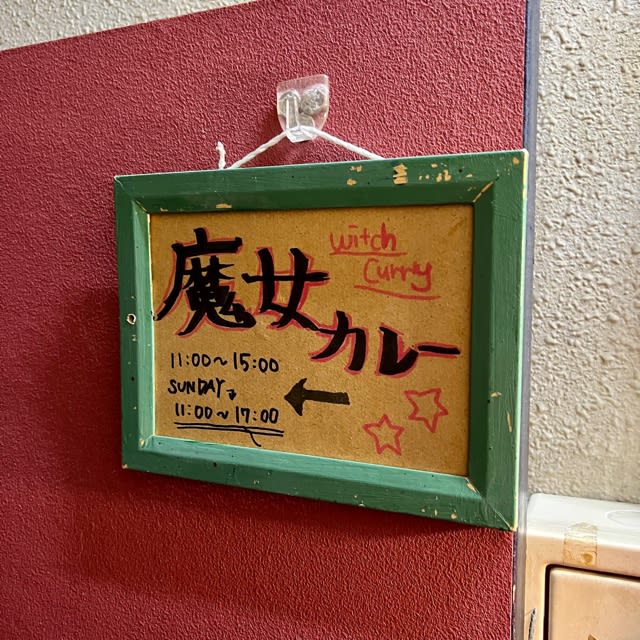 魔女カレー
witch
Curry
11:00〜15:00
SUNDAY
11:00〜17:00